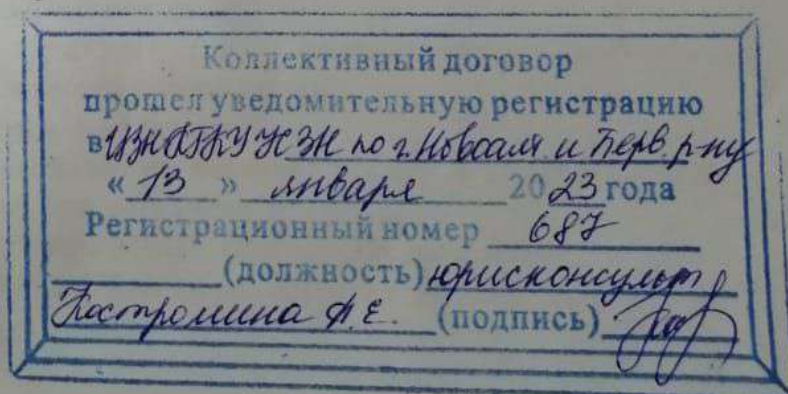 Коллективный договор
прошел уведомительную регистрацию
в ЦЗН КГКУ УСЗН по г. Новоалт и Перв. р-ну
« 13 » января 2023 года
Регистрационный номер 687
(должность) юрисконсульт
Костромина А.Е. (подпись)